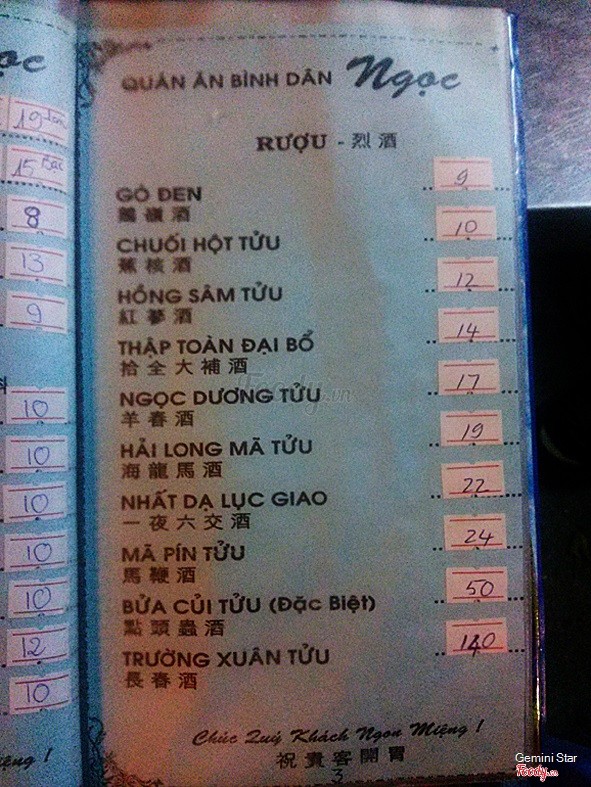 ọc
19 Tôm
15 Bạc
8
13
9
10
10
10
10
10
12
10
QUÁN ĂN BÌNH DÂN Ngọc
RƯỢU - 烈酒
GÒ ĐEN 9
鵝嶺酒
CHUỐI HỘT TỬU 10
蕉核酒
HỒNG SÂM TỬU 12
紅蔘酒
THẬP TOÀN ĐẠI BỔ 14
拾全大補酒
NGỌC DƯƠNG TỬU 17
羊春酒
HẢI LONG MÃ TỬU 19
海龍馬酒
NHẤT DẠ LỤC GIAO 22
一夜六交酒
MÃ PÍN TỬU 24
馬鞭酒
BỬA CỦI TỬU (Đặc Biệt) 50
點頭蟲酒
TRƯỜNG XUÂN TỬU 140
長春酒
Chúc Quý Khách Ngon Miệng !
祝貴客開胃
3
iệng !
Foody.vn
Gemini Star
Foody.vn